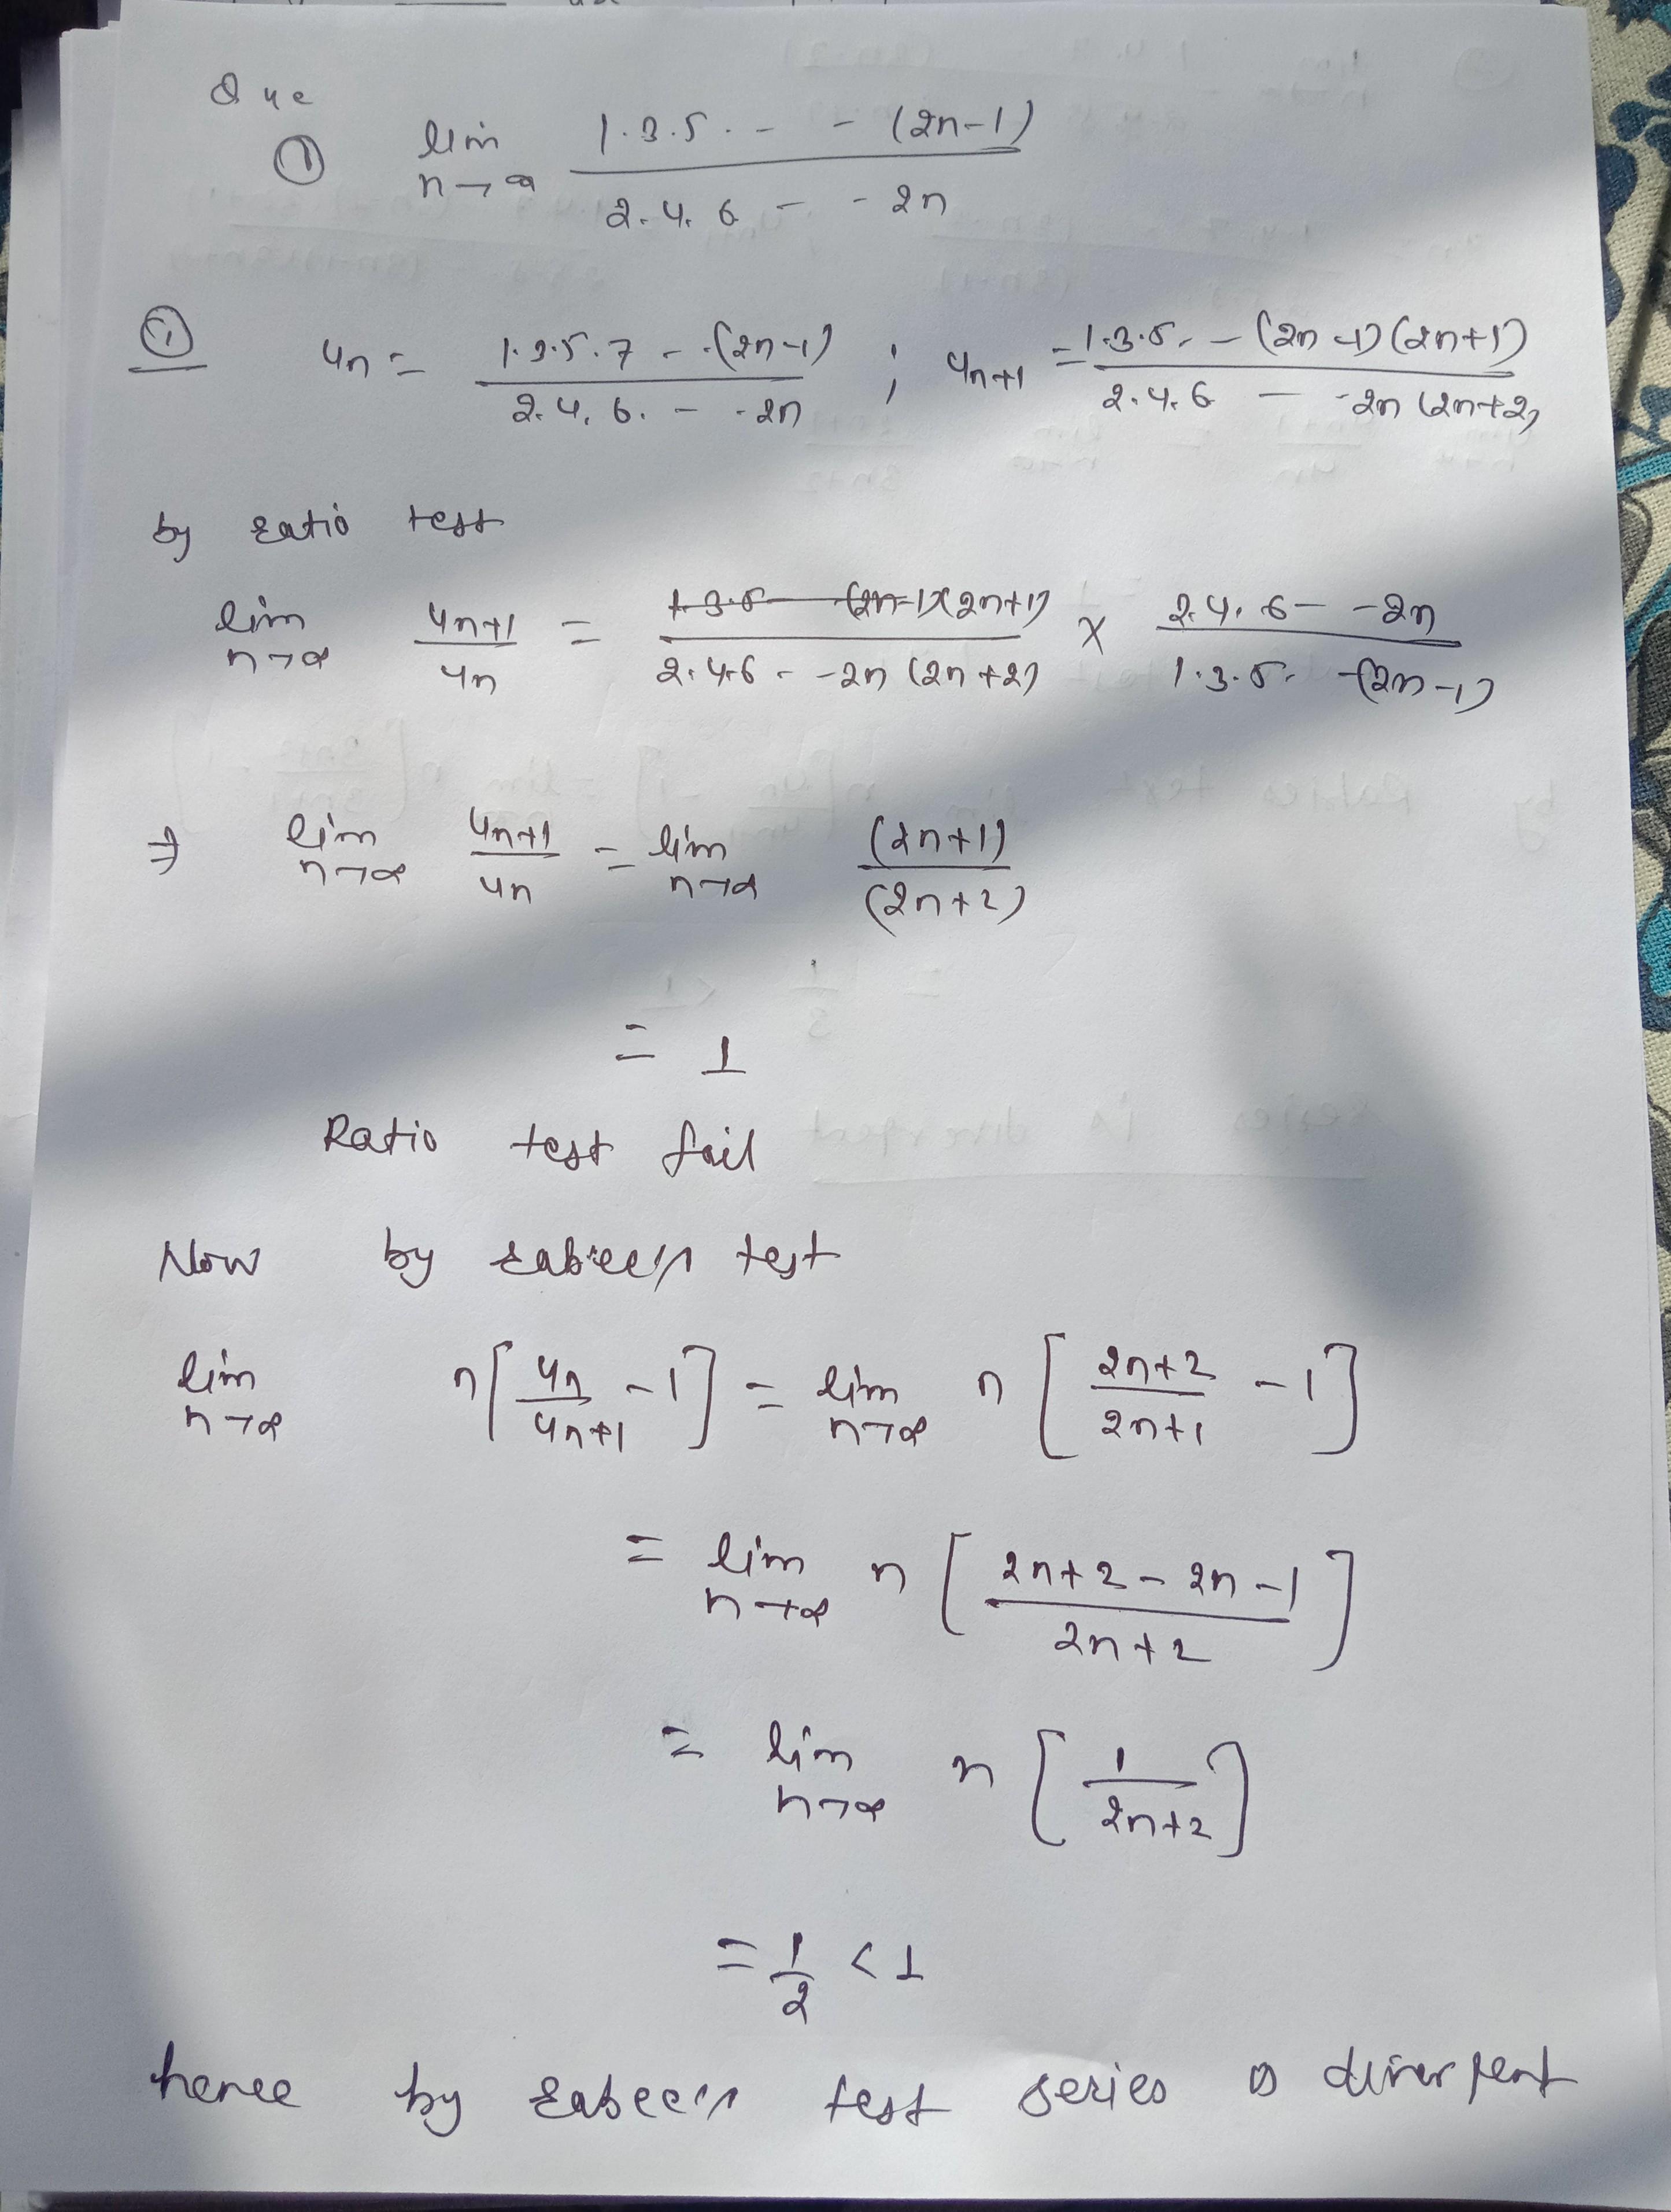 Que
① lim n→∞ 1.3.5.-- (2n-1) / 2.4.6 -- 2n
① un = 1.3.5.7 --(2n-1) / 2.4.6. -- 2n ; un+1 = 1.3.5. - (2n-1)(2n+1) / 2.4.6 -- 2n (2n+2)
by ratio test
lim n→∞ un+1 / un = 1.3.5 (2n-1)(2n+1) / 2.4.6 - -2n (2n+2) × 2.4.6 - -2n / 1.3.5. -(2n-1)
⇒ lim n→∞ un+1 / un = lim n→∞ (2n+1) / (2n+2)
= 1
Ratio test fail
Now by rabee's test
lim n→∞ n[un / un+1 - 1] = lim n→∞ n [2n+2 / 2n+1 - 1]
= lim n→∞ n [2n+2 - 2n - 1 / 2n+2]
= lim n→∞ n [1 / 2n+2]
= 1/2 < 1
hence by rabee's test series is divergent